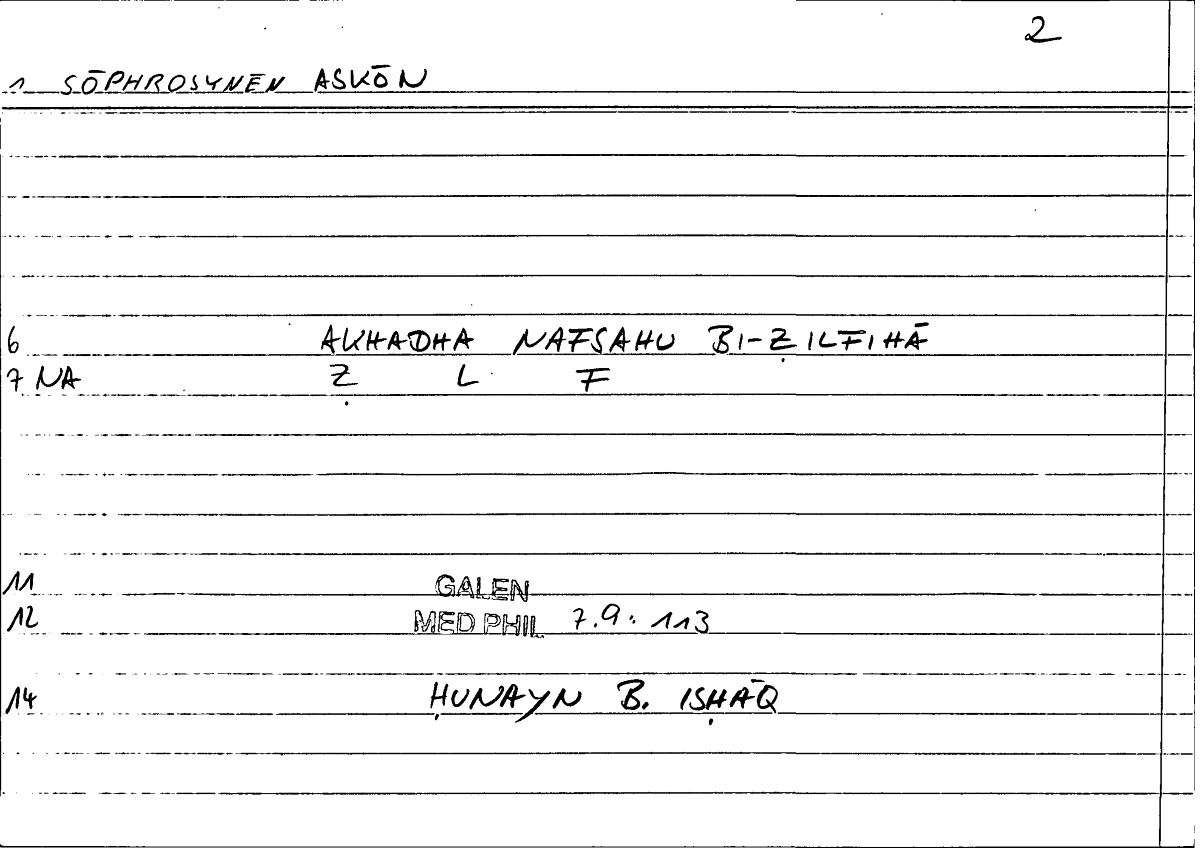 2
1 SŌPHROSYNĒN ASKŌN
6 AKHADHA NAFSAHU BI-ẒILFIHĀ
7 NA Ẓ L F
11 GALEN
12 MED PHIL 7.9: 113
14 ḤUNAYN B. ISḤĀQ